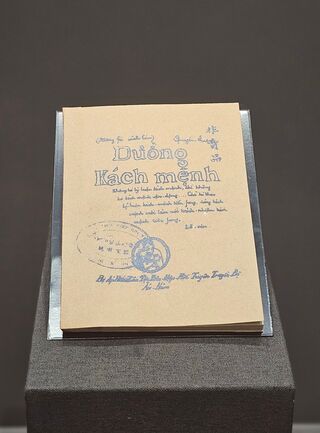 品
Đường
Kách mệnh
Không có lý luận kách mệnh, thì không
có kách mệnh vận động. Chỉ có theo
lý luận kách mệnh tiền phong, đảng kách
mệnh mới làm nổi trách nhiệm kách
mệnh tiền phong.
Lê-nin
Bị Áp Bức Dân Tộc Liên Hiệp Hội Tuyên Truyền Bộ